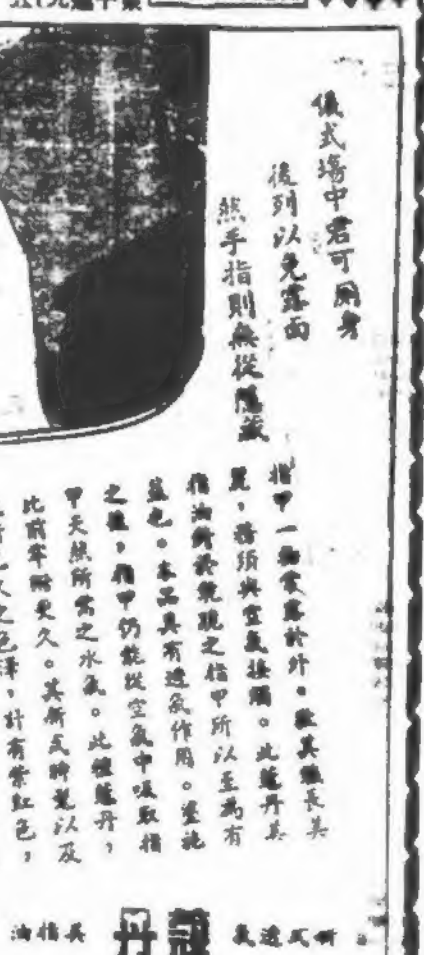 儀式場中君可廁身
後列以免露面
然手指則無從隱藏
指甲一物常露於外。欲其強長美
麗,務須與空氣接觸。此蔻丹美
指油對於脆硬之指甲所以至為有
益也。本品具有透氣作用。塗施
之後,指甲仍能從空氣中吸取指
甲天然所需之水氣。此種蔻丹,
比前牢耐更久。其新式時髦以及
之色澤,計有紫紅色,
新式透氣
蔻丹
美指油